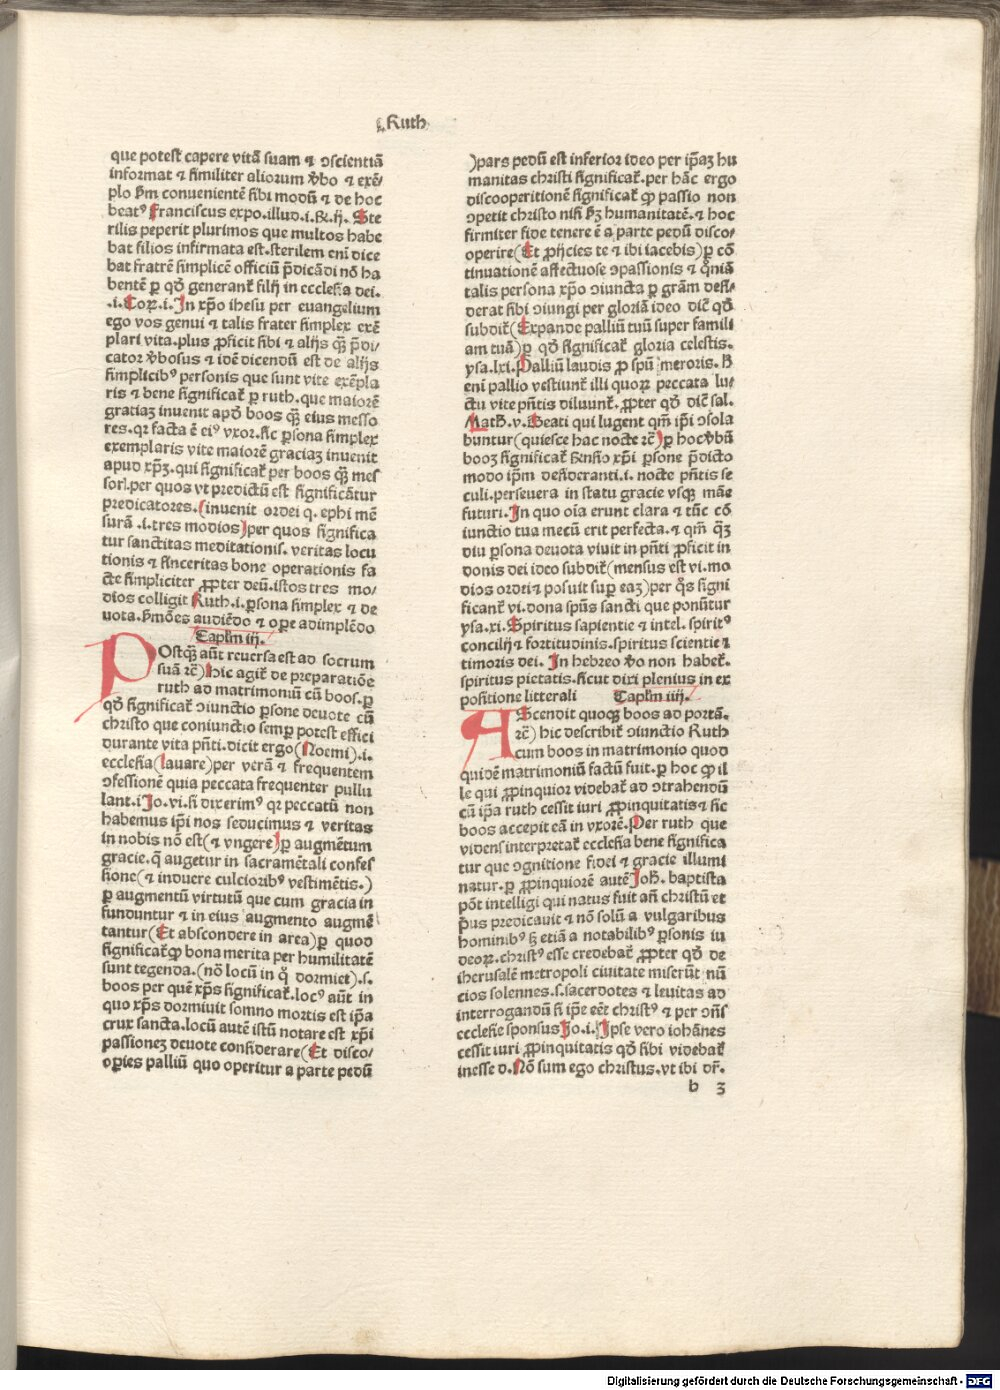 Ruth
que potest capere vitā suam ⁊ ꝯscientiā
informat ⁊ similiter aliorum v̄bo ⁊ exē/
plo ẜm convenientē sibi modū ⁊ de hoc
beatꝰ Franciscus expo.illud.i.R.ij. Ste
rilis peperit plurimos que multos habe
bat filios infirmata est.sterilem eni dice
bat fratrē simplicē officiū p̄dicādi nō ha
bentē ꝑ qd̄ generant̄ filij in ecclesia dei.
.i.Coꝝ.i.In xp̄o ihesu per euangelium
ego vos genui ⁊ talis frater simplex exē
plari vita.plus ꝓficit sibi ⁊ alijs qꝫ̄ p̄di/
cator v̄bosus ⁊ idē dicendū est de alijs
simplicibꝰ personis que sunt vite exēpla
ris ⁊ bene significat̄ ꝑ ruth.que maiorē
gratiaꝫ invenit apd̄ boos qꝫ̄ eius messo
res.qꝛ facta ē eiꝰ vxor.sic ꝑsona simplex
exemplaris vite maiorē graciaꝫ inuenit
apud xp̄ꝫ.qui significat̄ per boos qꝫ̄ mes
sorl.per quos vt predictū est significātur
predicatores.(inuenit ordei q. ephi mē
surā .i.tres modios)per quos significa
tur sanctitas meditationis. veritas locu
tionis ⁊ sinceritas bone operationis fa
cte simpliciter ꝓpter deū.istos tres mo/
dios colligit Ruth.i.ꝑsona simplex ⁊ de
uota.ẜmōes audiēdo ⁊ oꝑe adimplēdo
Capl̄m iij.
POstqꝫ̄ aūt reuersa est ad socrum
suā rc̄)hic agit̄ de preparatiōe
ruth ad matrimoniū cū boos.ꝑ
qd̄ significat̄ ꝯiunctio ꝑsone deuote cū
christo que coniunctio semꝑ potest effici
durante vita pn̄ti.dicit ergo(Noemi).i.
ecclesia(lauare)per verā ⁊ frequentem
ꝯfessionē quia peccata frequenter pullu
lant.i Jo.vi.si dixerimꝰ qꝛ peccatū non
habemus ip̄i nos seducimus ⁊ veritas
in nobis nō est(⁊ vngere)ꝑ augmētum
gracie.q̄ augetur in sacramētali confes
sione(⁊ induere culcioribꝰ vestimētis.)
ꝑ augmentū virtutū que cum gracia in
funduntur ⁊ in eius augmento augmē
tantur(Et abscondere in area)ꝑ quod
significat̄ꝙ bona merita per humilitatē
sunt tegenda.(nō locū in q̊ dormiet).s.
boos per quē xp̄s significat̄.locꝰ aūt in
quo xp̄s dormiuit somno mortis est ip̄a
crux sancta.locū autē istū notare est xp̄i
passioneꝫ deuote considerare(Et disco/
oꝑies palliū quo operitur a parte pedū
)pars pedū est inferior ideo per ip̄aꝫ hu
manitas christi significat̄.per hāc ergo
discooperitionē significat̄ ꝙ passio non
ꝯpetit christo nisi ẜꝫ humanitatē.⁊ hoc
firmiter fide tenere ē a parte pedū disco/
operire(Et ꝓijcies te ⁊ ibi iacebis)ꝑ cō
tinuationē affectuose ꝯpassionis ⁊ qm̄
talis persona xp̄o ꝯiuncta ꝑ grām desi/
derat sibi ꝯiungi per gloriā ideo dic̄ qd̄
subdit̄(Expande palliū tuū super famili
am tuā)ꝑ qd̄ significat̄ gloria celestis.
ysa.lxi.Palliū laudis ꝓ spū meroris. H̄
eni pallio vestiunt̄ illi quoꝝ peccata lu/
ctu vite pn̄tis diluunt̄.ꝓpter qd̄ dic̄ sal.
Math̄.v.Beati qui lugent qm̄ ip̄i ꝯsola
buntur(quiesce hac nocte rc̄)ꝑ hoc v̄bū
booꝫ significat̄ ẜnsio xp̄i ꝑsone p̄dicto
modo ip̄m desideranti.i. nocte pn̄tis se
culi.perseuera in statu gracie vsqꝫ māe
futuri.In quo oīa erunt clara ⁊ tūc cō
iunctio tua mecū erit perfecta.⁊ qm̄ qꝫ̄
diu ꝑsona deuota viuit in pn̄ti ꝓficit in
donis dei ideo subdit̄(mensus est vi.mo
dios ordei ⁊ posuit suꝑ eaꝫ)per q̊s signi
ficant̄ vi.dona spūs sancti que ponūtur
ysa.xi.Spiritus sapientie ⁊ intel. spiritꝰ
concilij⁊ fortitudinis.spiritus scientie ⁊
timoris dei. In hebreo v̄o non habet̄.
spiritus pietatis.sicut dixi plenius in ex
positione litterali
Capl̄m iiij.
AScendit quoqꝫ boos ad portā.
rc̄) hic describit̄ ꝯiunctio Ruth
cum boos in matrimonio quod
quidē matrimoniū factū fuit.ꝑ hoc ꝙ il
le qui ꝓpinquior videbat̄ ad ꝯtrahendū
cū ip̄a ruth cessit iuri ꝓpinquitatis⁊ sic
boos accepit eā in vxorē.Per ruth que
videns interpretat̄ ecclesia bene significa
tur que ꝯgnitione fidei ⁊ gracie illumi
natur.ꝑ ꝓpinquiorē autē Joh̄. baptista
pōt intelligi qui natus fuit an̄ christū et
p̄us predicauit ⁊ nō solū a vulgaribus
hominibꝰ ẜꝫ etiā a notabilibꝰ ꝑsonis iu
deoꝝ.christꝰ esse credebat̄ ꝓpter qd̄ de
iherusalē metropoli ciuitate miserūt nū
cios solennes.s.sacerdotes ⁊ leuitas ad
interrogandū si ip̄e eēt christꝰ ⁊ per ꝯn̄s
ecclesie sponsus Jo.i.Ipse vero iohānes
cessit iuri ꝓpinquitatis qd̄ sibi videbat̄
inesse d.Nō sum ego christus.vt ibi dr̄.
b 3
Digitalisierung gefördert durch die Deutsche Forschungsgemeinschaft - DFG